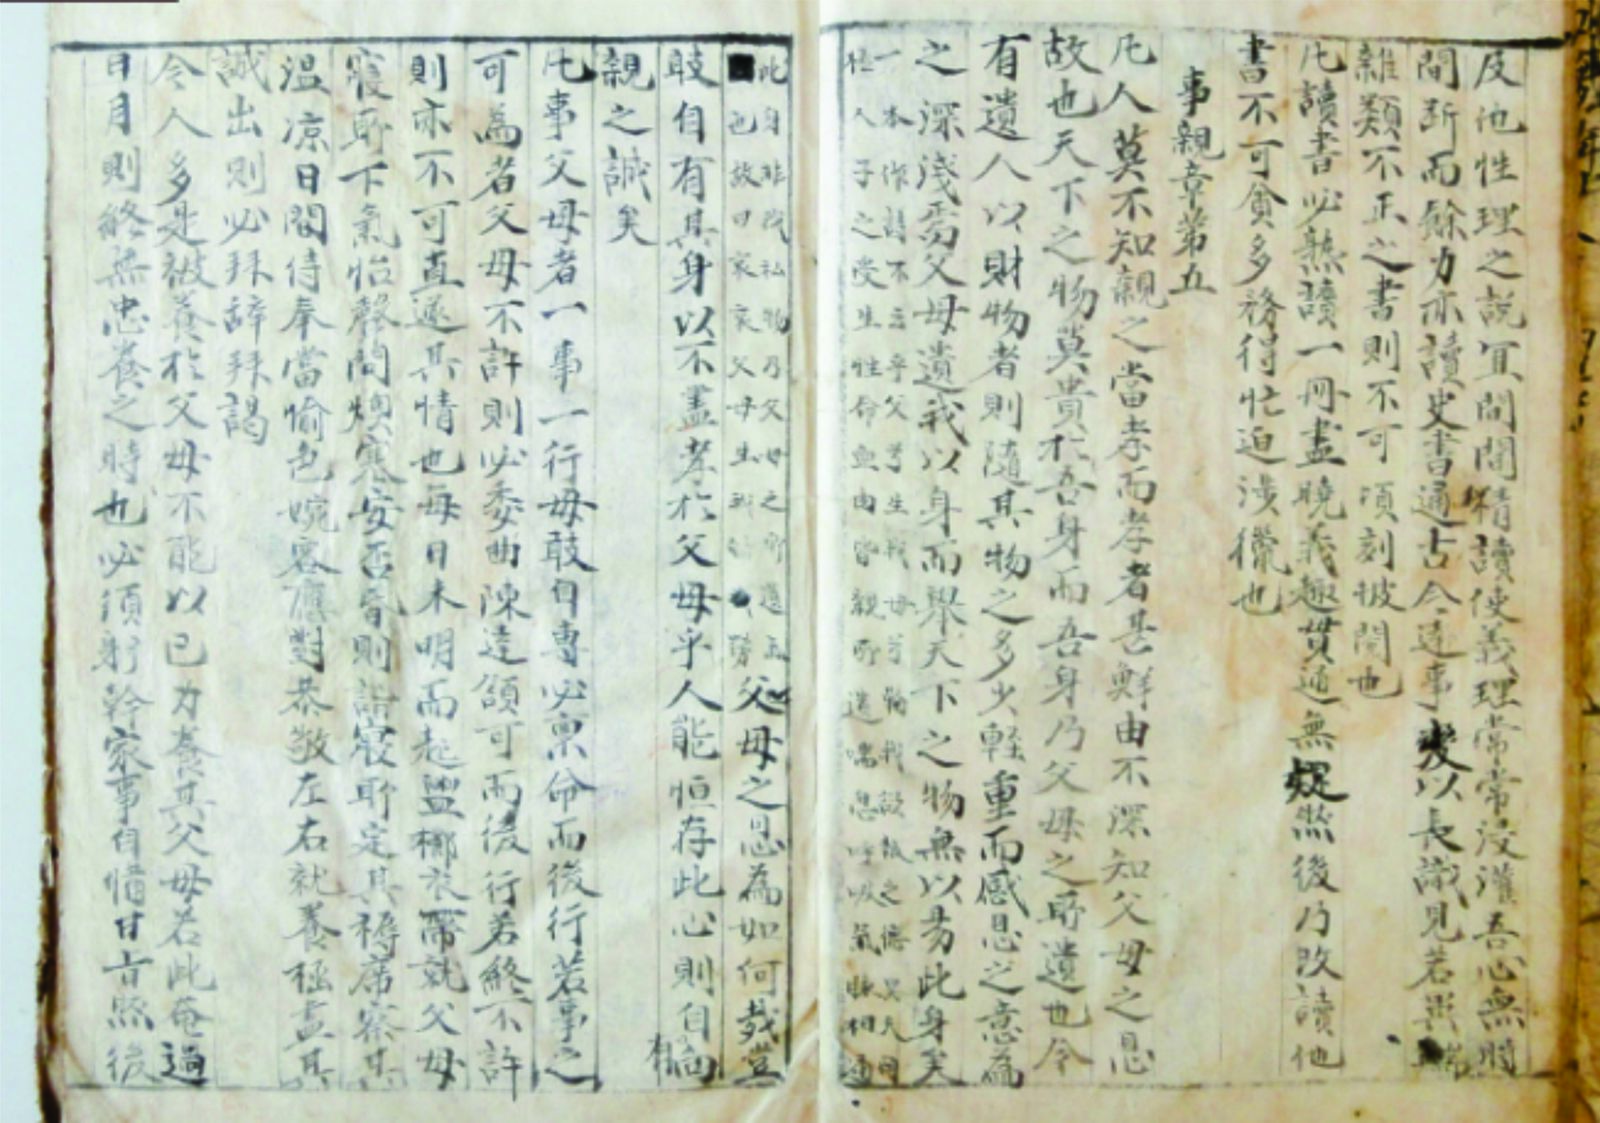 及他性理之說宜間間精讀使義理常常浸灌吾心無時
間斷而餘力亦讀史書通古今達事變以長識見若異端
雜類不正之書則不可頃刻披閱也
凡讀書必熟讀一冊盡曉義趣貫通無疑然後乃改讀他
書不可貪多務得忙迫涉獵也
事親章第五
凡人莫不知親之當孝而孝者甚鮮由不深知父母之恩
故也天下之物莫貴於吾身而吾身乃父母之所遺也今
有遺人以財物者則隨其物之多少輕重而感恩之意爲
之深淺焉父母遺我以身而舉天下之物無以易此身矣
一本作詩不云乎父兮生我母兮鞠我欲報之德昊天罔
極人子之受生性命血肉皆親所遺喘息呼吸氣脉相通
此身非我私物乃父母之所遺
也故曰哀哀父母生我劬勞
父母之恩爲如何哉豈
敢自有其身以不盡孝於父母乎人能恒存此心則自有向
親之誠矣
凡事父母者一事一行毋敢自專必稟命而後行若事之
可爲者父母不許則必委曲陳達頷可而後行若終不許
則亦不可直遂其情也每日未明而起盥櫛衣帶就父母
寢所下氣怡聲問燠寒安否昏則詣寢所定其褥席察其
溫凉日間侍奉當愉色婉容應對恭敬左右就養極盡其
誠出則必拜辭拜謁
今人多是被養於父母不能以己力養其父母若此奄過
日月則終無忠養之時也必須躬幹家事自備甘旨然後